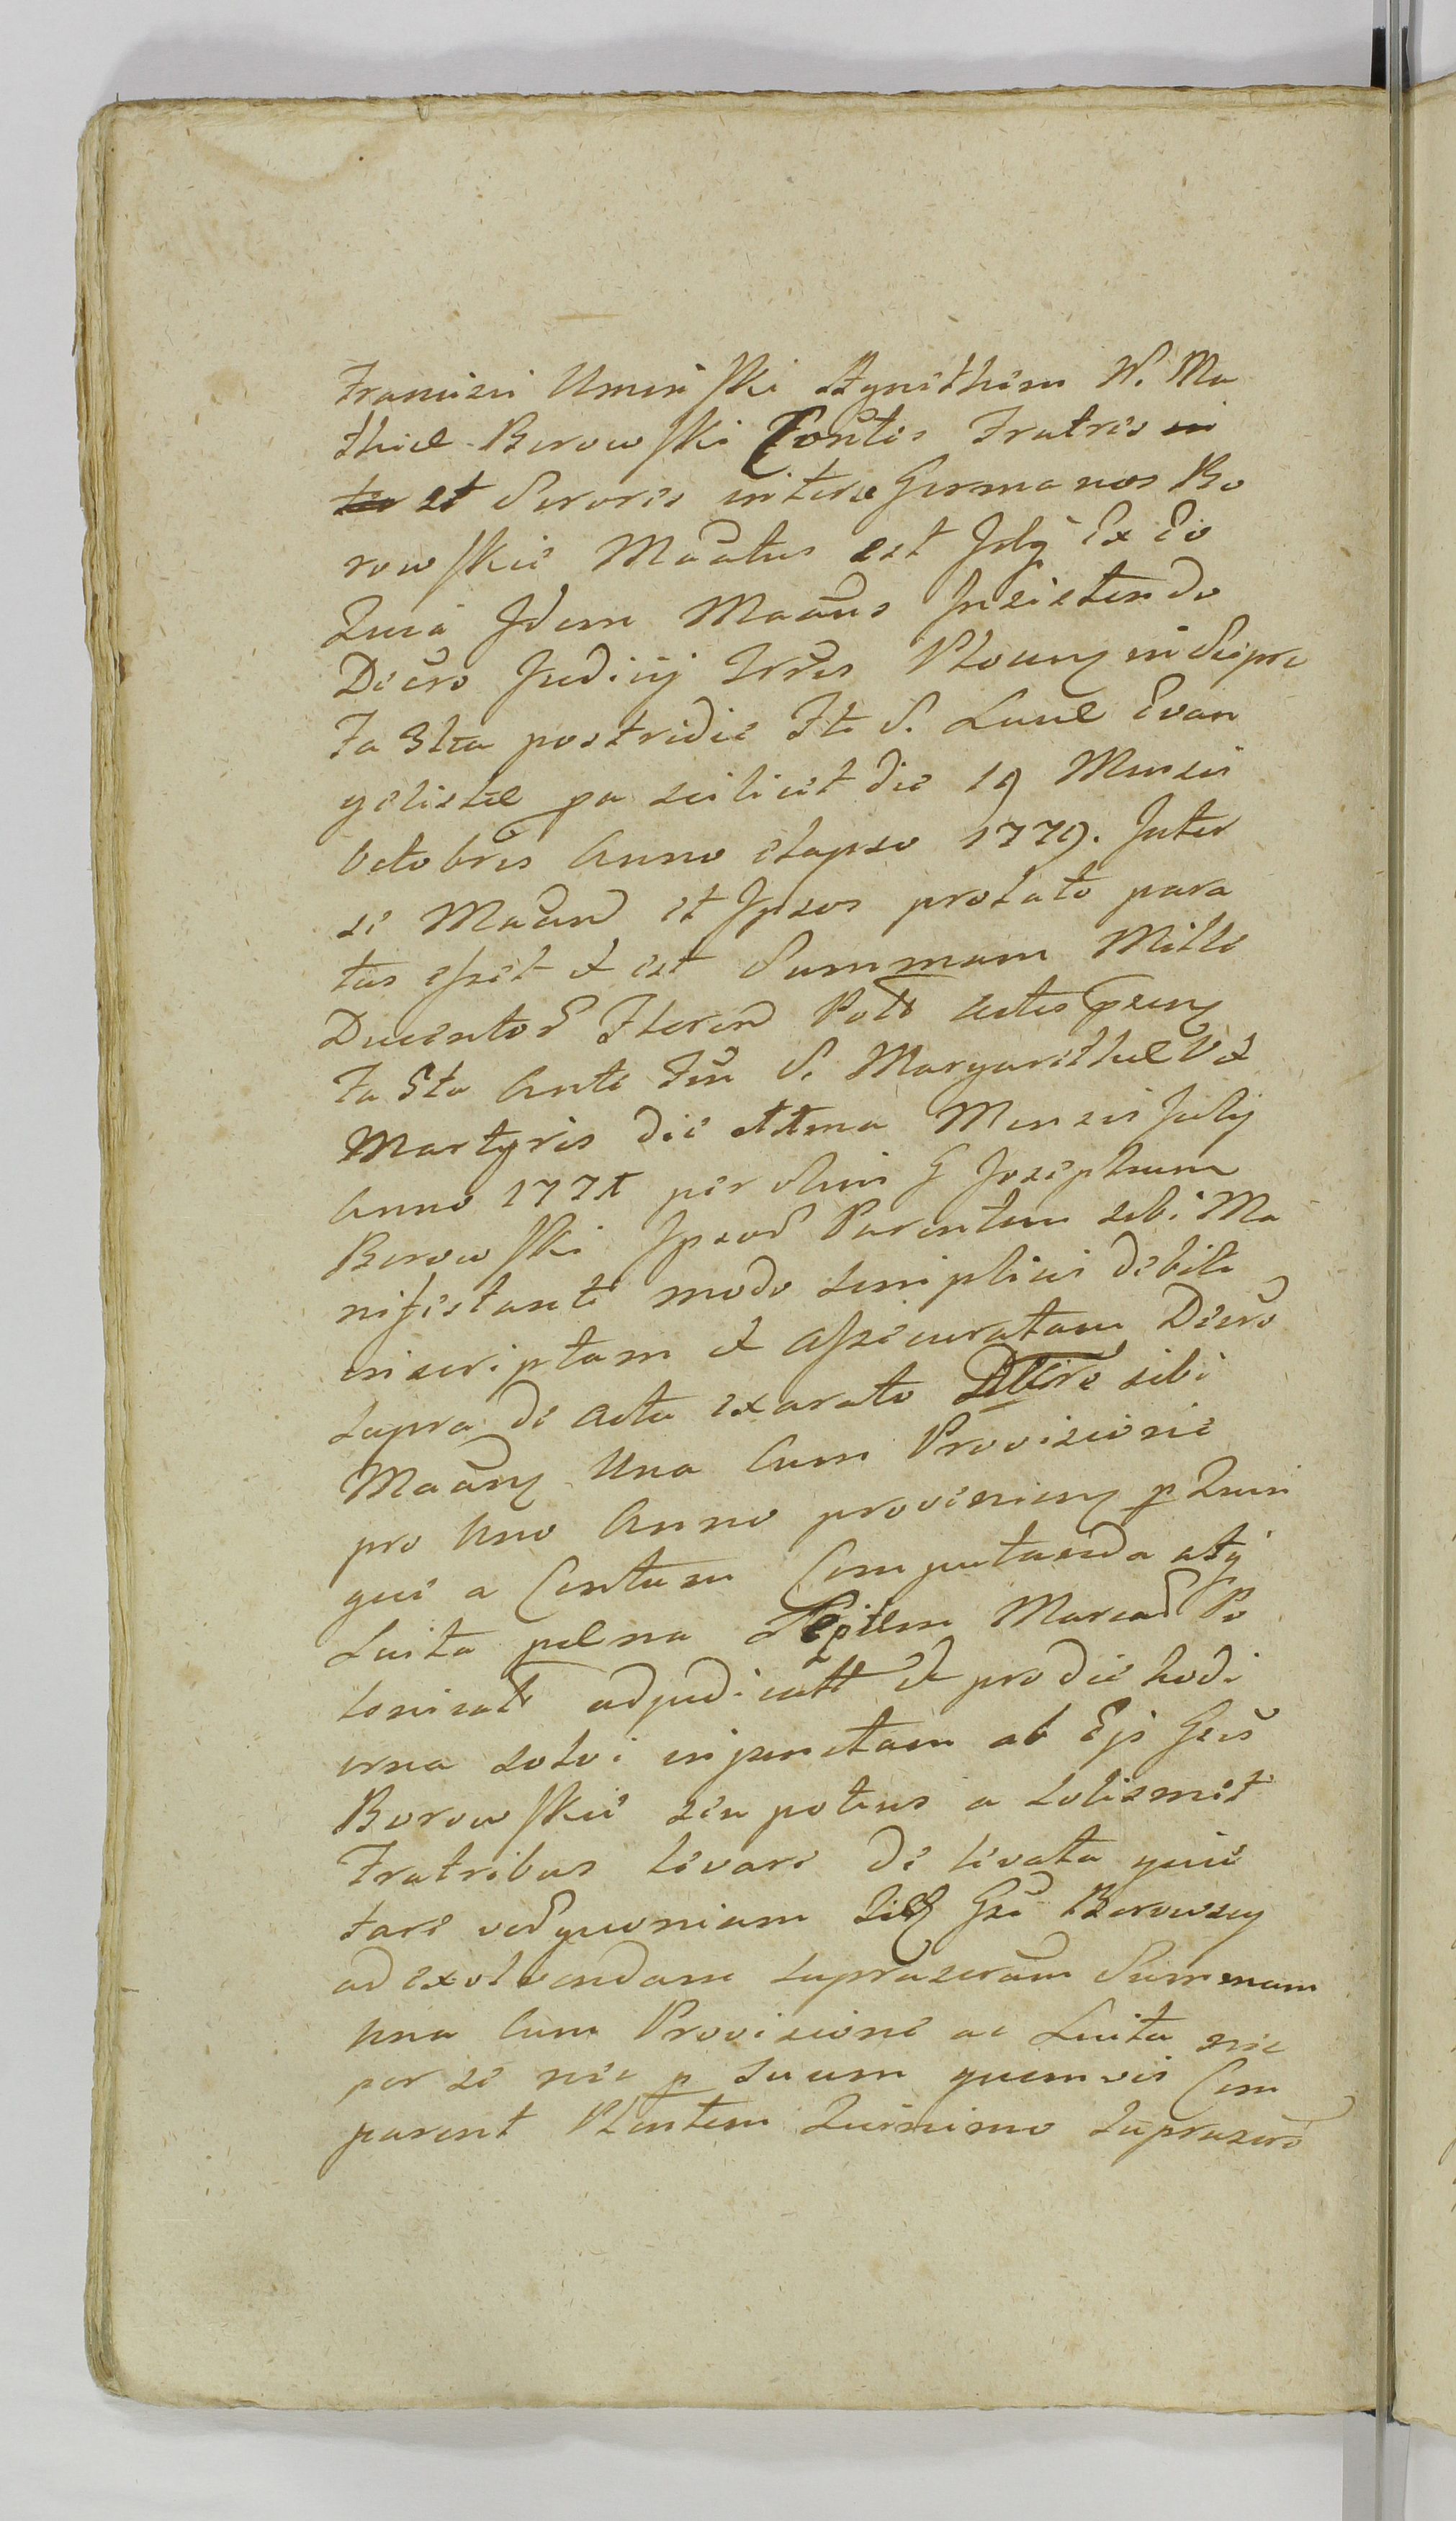 Francisci Uminski Agnethem W. Ma
thiæ Borowski Contis Fratres in
ter et Sorores inter se Germanos Bo
rowskie Maatus est Idq Ex Eo
Quia Idem Maans Insistendo
Decro Judicij Trris Plocen in Sierpc
Fa 3tia postridie Fti S. Lucæ Evan
gelistæ pa scilicet die 19 Mensis
Octobris Anno elapso 1779. Inter
se Maand et Ipsos prolato para
tus esset et est Summam Mille
Ducentor Floren Poll actis pseng
Fa 5ta Ante Fm S. Margarethæ V et
Martyris die Mensis Julij
Anno 177 per olim G Josephum
Borowski Ipsor Parentem sibi Ma
nifestanti modo simplicis debiti
inscriptam et assecuratam Decro
supra de actu exarato sibi
Maang Una Cum Provisione
pro Uno Anno proveniens p Quin
que a Centum Computanda atq
Luita pæna Septem Marcar Po
lonicals adjudicatt et pro die hodi
erna solvi injunctam ab Ejs Gsis
Borowskie seu potius a solismet
Fratribus levare de levata quie
tare verum quoniam Gsi Borowscy
ad exolvendam suprascram Summam
Una Cum Provisione ac Luita nec
per se nec p suum quemvis Com
parent Plentem Quinimo Suprascr